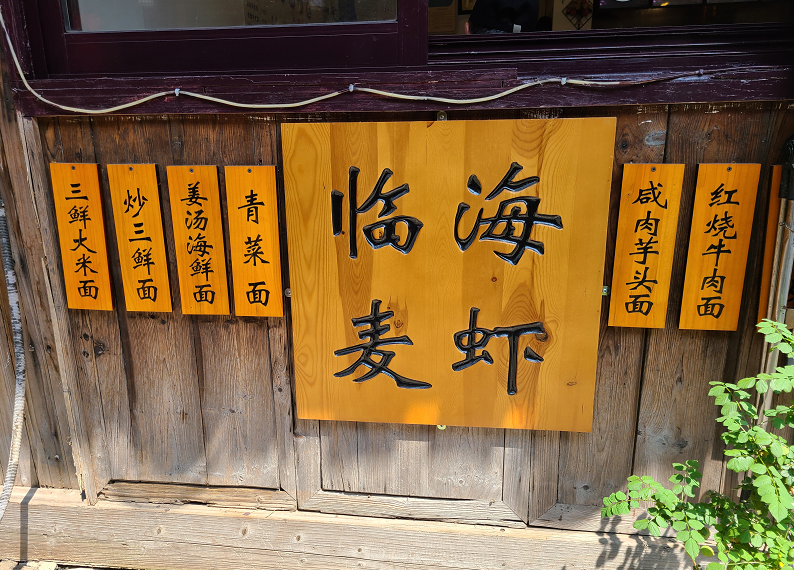 三鲜大米面
炒三鲜面
姜汤海鲜面
青菜面
临海
麦虾
咸肉芋头面
红烧牛肉面